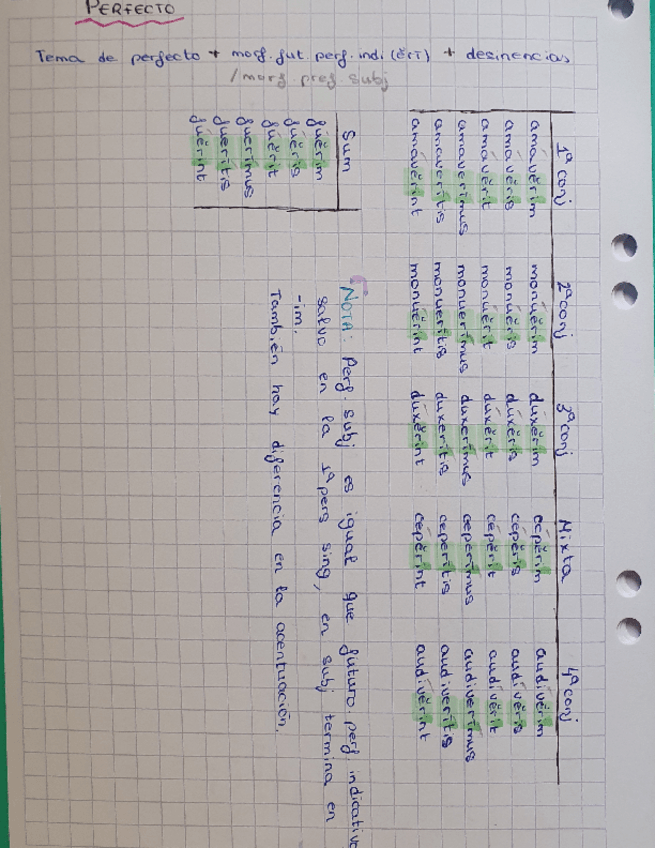 PERFECTO
Tema de perfecto + morf. fut. perf. indi (ĕri) + desinencias
/ morf. pref. subj
1ª conj 2ª conj 3ª conj Mixta 4ª conj
amávĕrim monúĕrim dúxĕrim cépĕrim audívĕrim
amávĕris monúĕris dúxĕris cépĕris audívĕris
amávĕrit monúĕrit dúxĕrit cépĕrit audívĕrit
amaverímus monuerímus duxerímus ceperímus audiverímus
amaverítis monuerítis duxerítis ceperítis audiverítis
amávĕrint monúĕrint dúxĕrint cépĕrint audívĕrint
Sum
fúĕrim
fúĕris
fúĕrit
fuerímus
fuerítis
fúĕrint
NOTA: Perf. subj es igual que futuro perf. indicativo
salvo en la 1ª pers sing, en subj termina en
-im.
También hay diferencia en la acentuación.